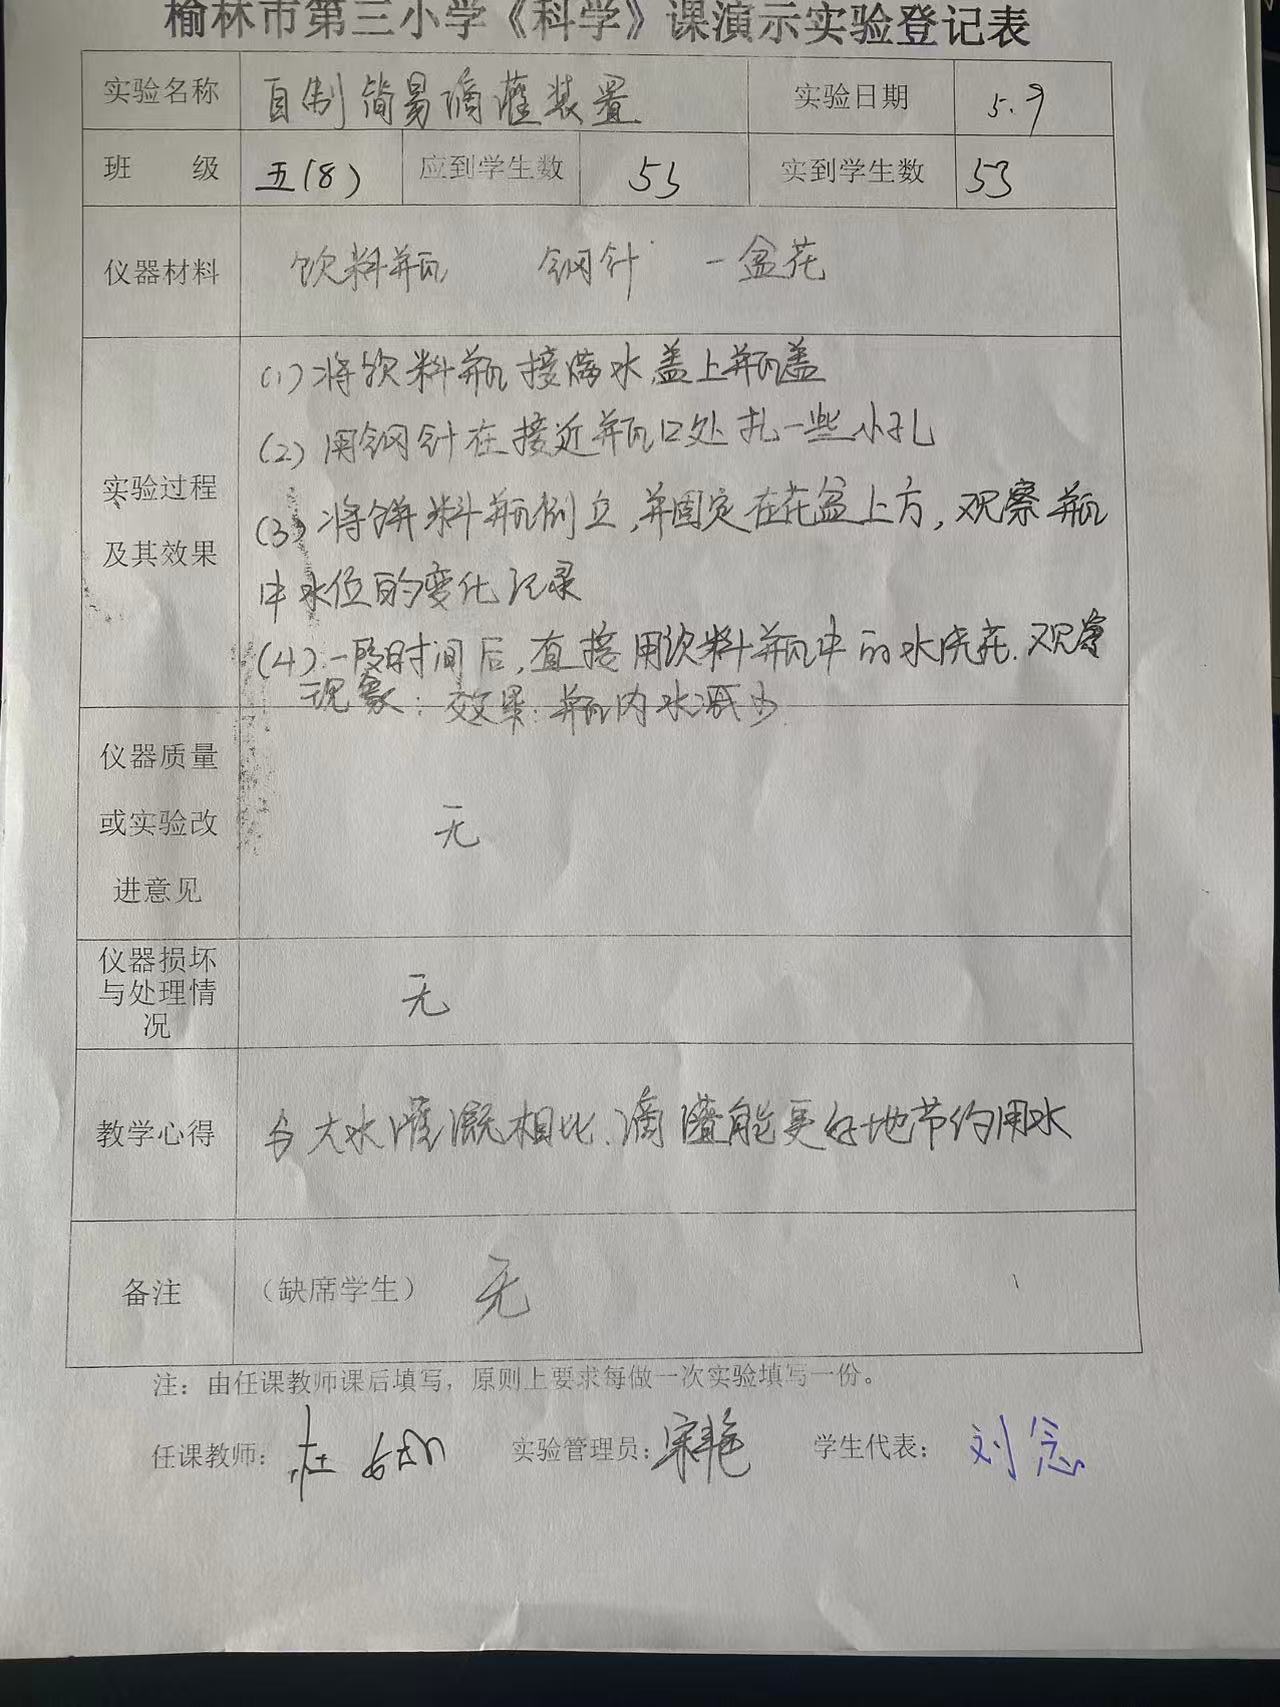 榆林市第三小学《科学》课演示实验登记表
实验名称 自制简易滴灌装置 实验日期 5.9
班 级 五(8) 应到学生数 53 实到学生数 53
仪器材料 饮料瓶 钢针 一盆花
(1)将饮料瓶接满水,盖上瓶盖
(2)用钢针在接近瓶口处扎一些小孔
实验过程
及其效果
(3)将饮料瓶倒立,并固定在花盆上方,观察瓶
中水位的变化记录
(4)一段时间后,直接用饮料瓶中的水浇花.观察
现象:效果:瓶内水减少
仪器质量
或实验改
进意见
无
仪器损坏
与处理情
况
无
教学心得 与大水灌溉相比.滴灌能更好地节约用水
备注 (缺席学生) 无
注:由任课教师课后填写,原则上要求每做一次实验填写一份。
任课教师:杜 实验管理员:宋艳 学生代表:刘念